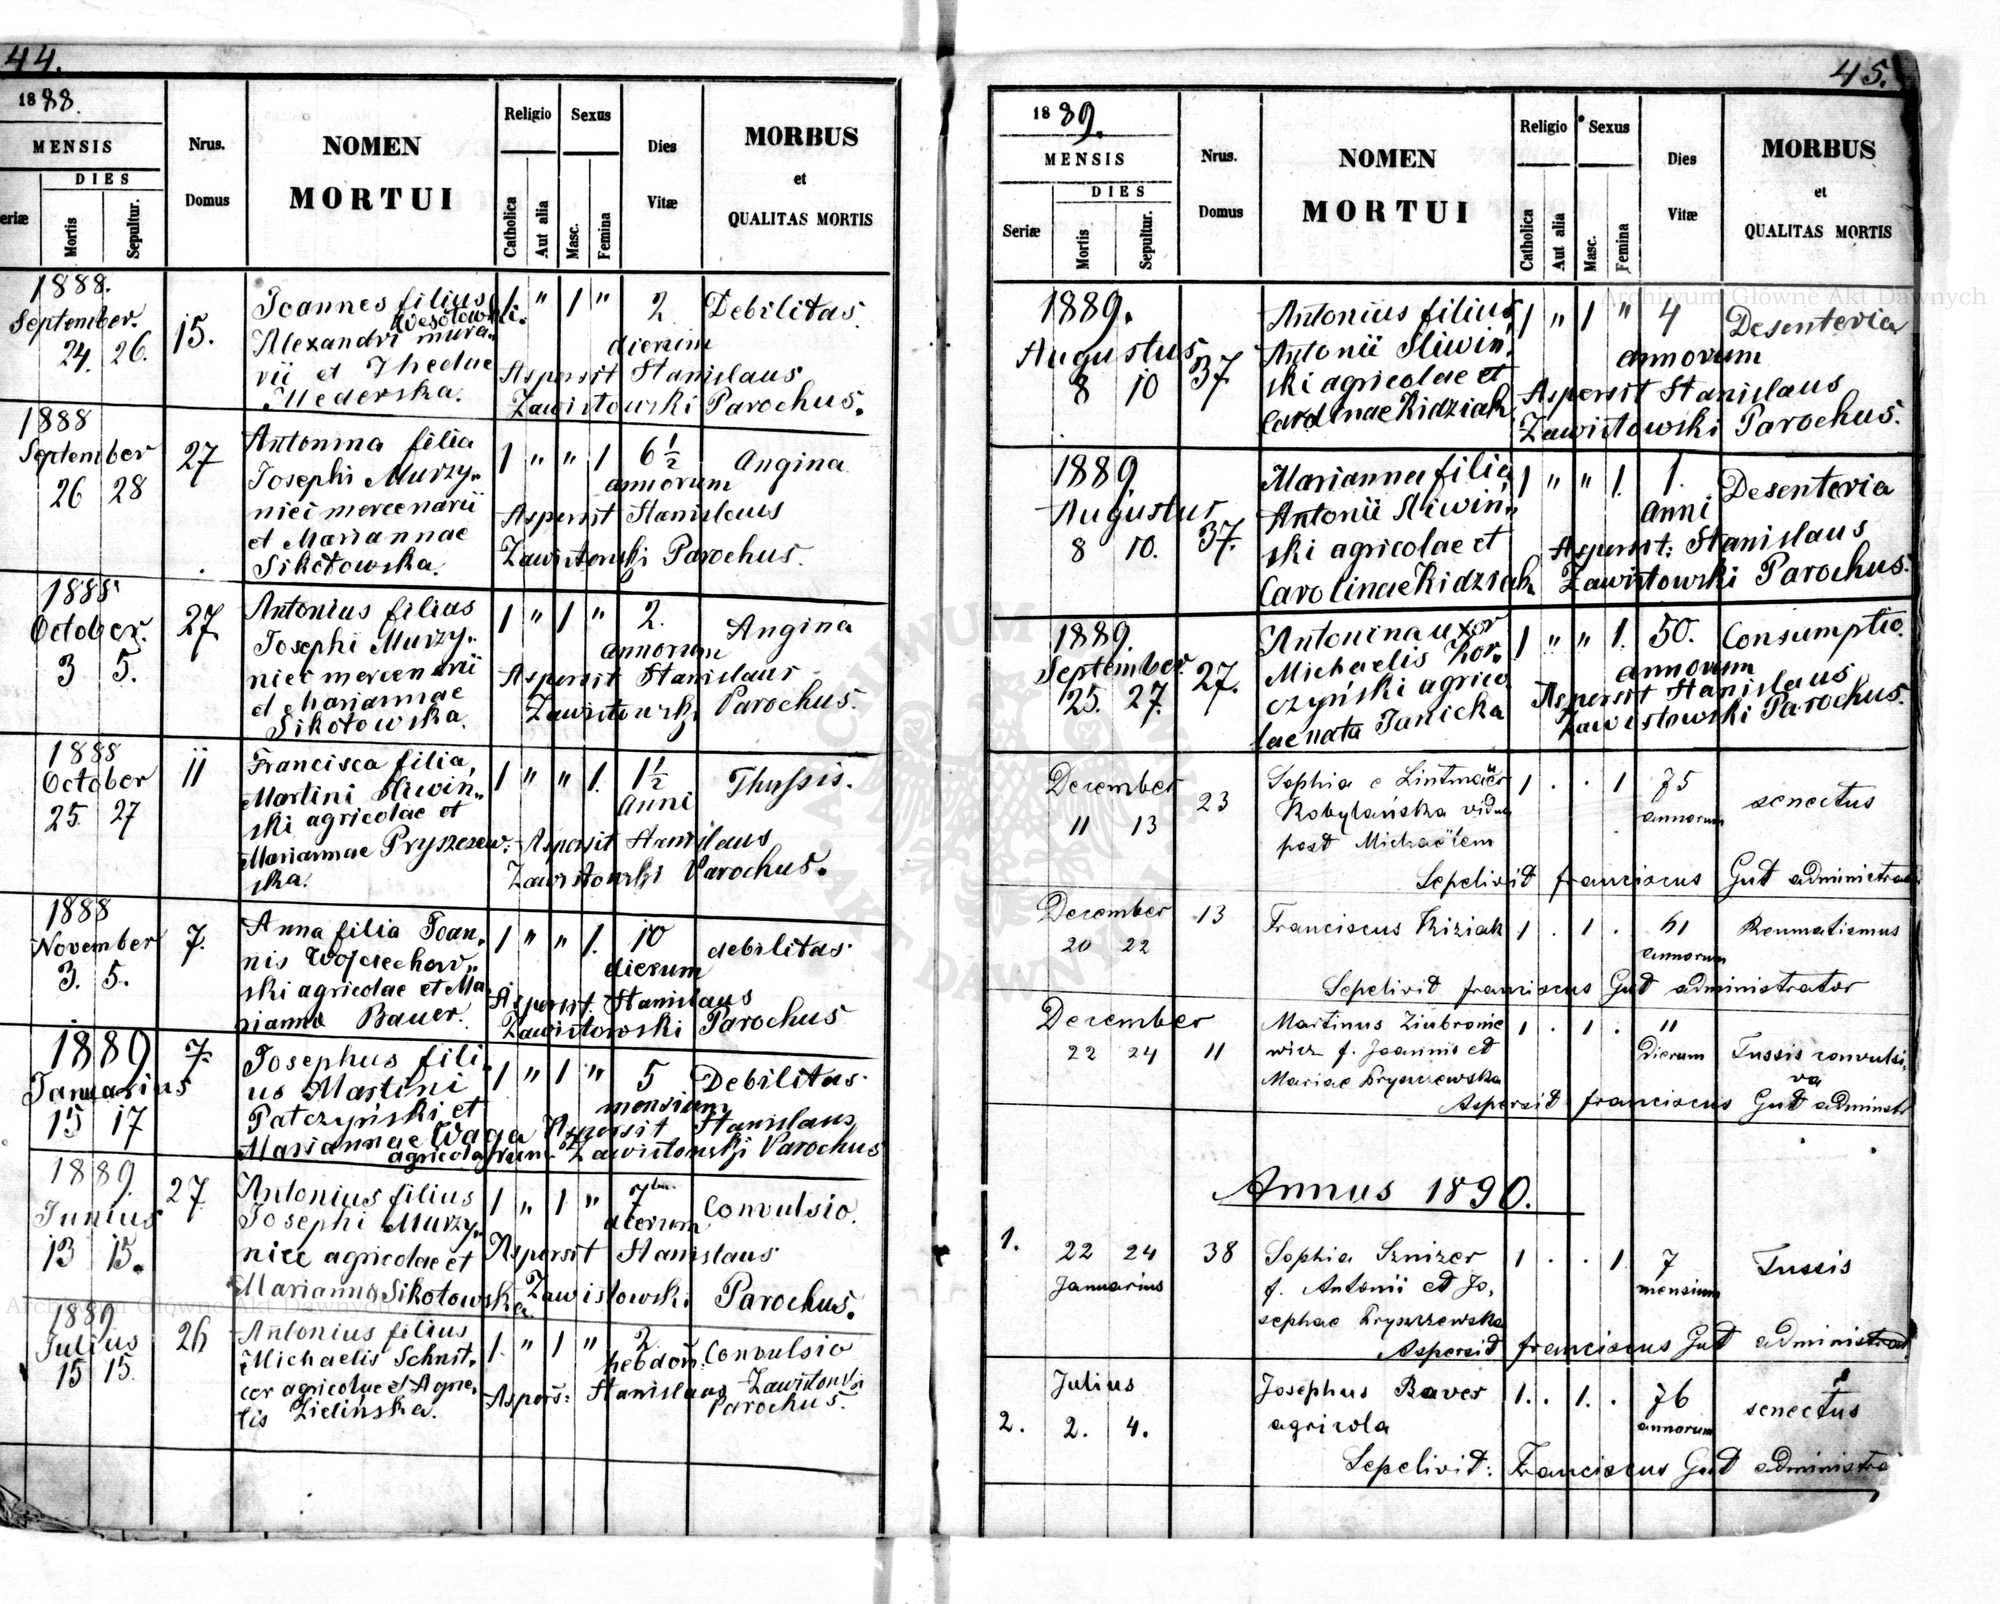 44.
1888.
MENSIS
DIES
eriæ
Mortis
Sepultur.
Nrus.
Domus
NOMEN
MORTUI
Religio
Catholica
Aut alia
Sexus
Masc.
Femina
Dies
Vitæ
MORBUS
et
QUALITAS MORTIS
1888.
September.
24. 26.
15.
Joannes filius
Alexandri mura„
rii et Thedue
Mederska.
1 „ 1 „
2
dierum
Debilitas.
Aspersit Stanislaus
Zawistowski Parochus.
1888
September
26 28
27
Antonina filia
Josephi Murzy„
niei mercenarii
et Mariannae
Sikotowska.
1 „ „ 1
6 1/2
annorum
Angina
Aspersit Stanislaus
Zawistowski Parochus.
1888
October.
3 5.
27.
Antonius filius
Josephi Murzy„
niec mercenarii
et Mariannae
Sikotowska.
1 „ 1 „
2.
annorum
Angina
Aspersit Stanislaus
Zawistowski Parochus.
1888
October
25 27
11
Francisca filia
Martini Sliwin„
ski agricolae et
Mariannae Pryszczew„
ska.
1 „ „ 1.
1 1/2
anni
Thussis.
Aspersit Stanislaus
Zawistowski Parochus.
1888
November
3. 5.
7.
Anna filia Joan„
nis Wojciechow„
ski agricolae et Ma„
rianna Bauer.
1 „ „ 1.
10
dierum
debilitas
Aspersit Stanislaus
Zawistowski Parochus
1889
Januarius
15 17
7.
Josephus fili„
us Martini
Patczyński et
Mariannae Waga
agricolarum
1 „ 1 „
5
mensium
Debilitas
Aspersit Stanislaus
Zawistowski Parochus
1889.
Junius
13 15.
27
Antonius filius
Josephi Murzy„
niec agricolae et
Marianna Sikotowska
1 „ 1 „
7
dierum
Convulsio.
Aspersit Stanislaus
Zawistowski Parochus.
1889
Julius
15 15.
26
Antonius filius
Michaelis Schnit„
cer agricolae et Agne„
tis Zielińska.
1 „ 1 „
2
hebdom.
Convulsio
Aspers: Stanislaus Zawistowski
Parochus.
45.
1889.
MENSIS
DIES
Seriæ
Mortis
Sepultur.
Nrus.
Domus
NOMEN
MORTUI
Religio
Catholica
Aut alia
Sexus
Masc.
Femina
Dies
Vitæ
MORBUS
et
QUALITAS MORTIS
1889.
Augustus
8 10
37
Antonius filius
Antonii Sliwiń„
ski agricolae et
Carolinae Kidziak
1 „ 1 „
4
annorum
Desenteria
Aspersit Stanislaus
Zawistowski Parochus.
1889
Augustus
8 10.
37.
Marianna filia
Antonii Sliwiń„
ski agricolae et
Carolinae Kidziak
1 „ „ 1.
1.
anni
Desenteria
Aspersit: Stanislaus
Zawistowski Parochus.
1889.
September
25. 27.
27.
Antonina uxor
Michaelis Kor„
czyński agrico„
lae nata Janicka
1 „ „ 1.
50.
annorum
Consumptio.
Aspersit Stanislaus
Zawistowski Parochus.
December
11 13
23
Sophia e Lintmaër
Kobylańska vidua
post Michaëlem
1 . . 1
75
annorum
senectus
Sepelivit franciscus Gut administrator
December
20 22
13
Franciscus Kiziak
1 . 1 .
61
annorum
Reumatismus
Sepelivit franciscus Gut administrator
December
22 24
11
Martinus Ziubronie
wicz f. Joannis et
Mariae Pryszczewska
1 . 1 .
11
dierum
Tussis convulsi„
va
Aspersit franciscus Gut adminstr
Annus 1890.
1.
22 24
Januarius
38
Sophia Sznizer
f. Antonii et Jo„
sephae Pryszczewska
1 . . 1
7
mensium
Tussis
Aspersit franciscus Gut administrat
2.
Julius
2. 4.
Josephus Baver
agricola
1. . 1. .
76
annorum
senectus
Sepelivit: Franciscus Gut administra
Archiwum Główne Akt Dawnych
Archiwum Główne Akt Dawnych